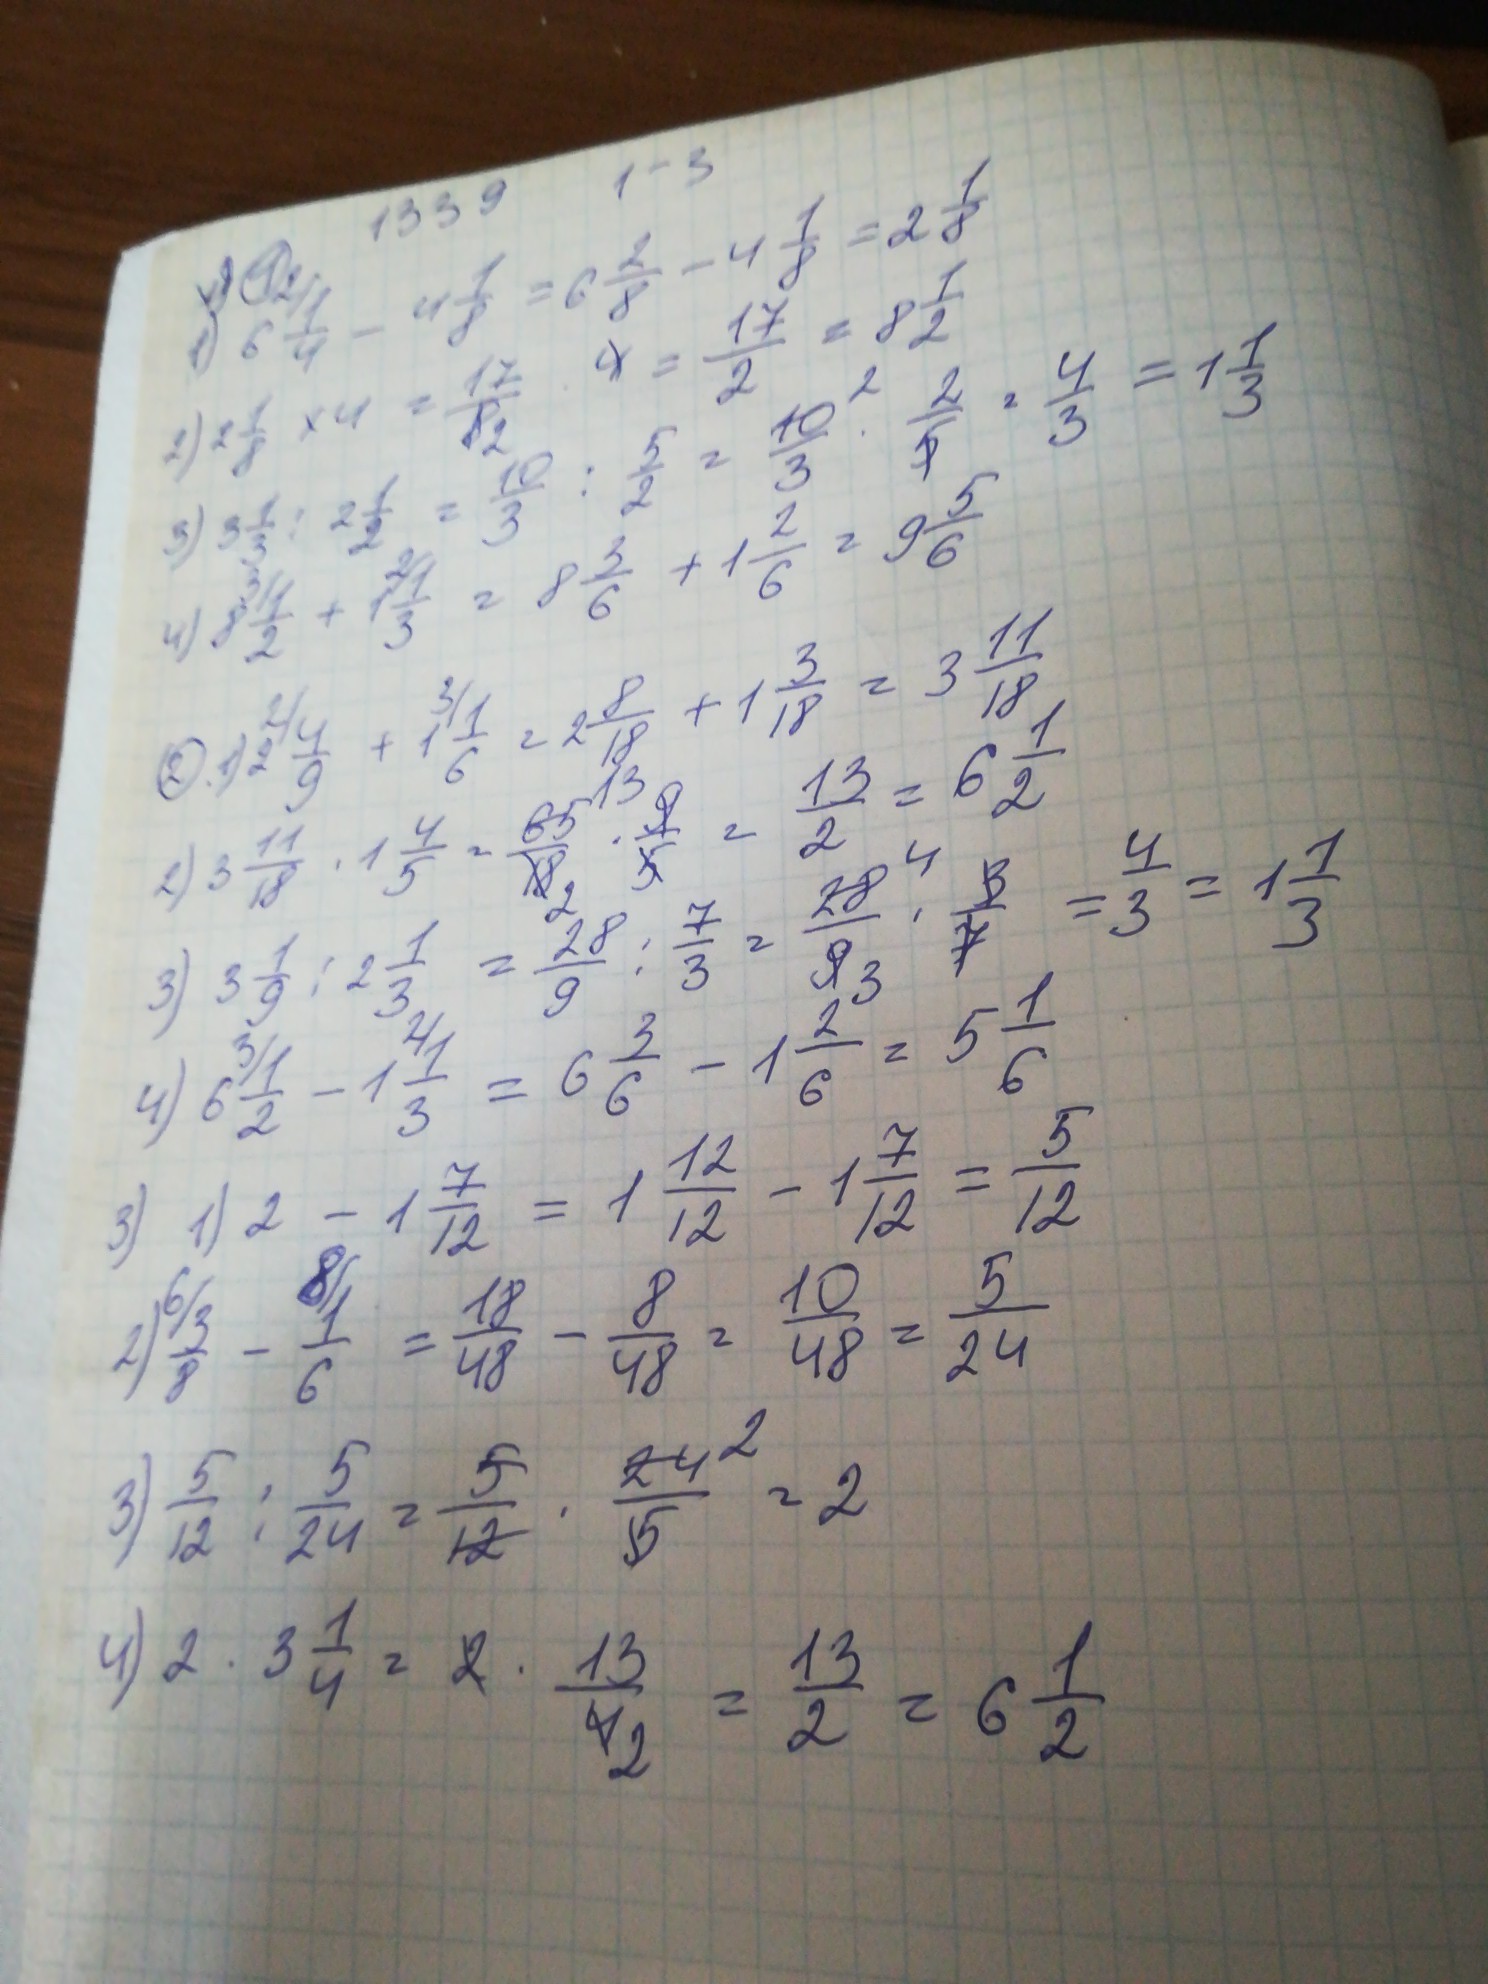 1339 1-3
① 1) 6 2/1/4 - 4 1/8 = 6 2/8 - 4 1/8 = 2 1/8
2) 2 1/8 × 4 = 17/8 2 · 4 = 17/2 = 8 1/2
3) 3 1/3 : 2 1/2 = 10/3 : 5/2 = 10/3 2 · 2/5 = 4/3 = 1 1/3
4) 8 3/1/2 + 1 2/1/3 = 8 3/6 + 1 2/6 = 9 5/6
②. 1) 2 2/4/9 + 1 3/1/6 = 2 8/18 + 1 3/18 = 3 11/18
2) 3 11/18 · 1 4/5 = 65 13/18 2 · 9/5 = 13/2 = 6 1/2
3) 3 1/9 : 2 1/3 = 28/9 : 7/3 = 28 4/9 3 · 3/7 = 4/3 = 1 1/3
4) 6 3/1/2 - 1 2/1/3 = 6 3/6 - 1 2/6 = 5 1/6
3) 1) 2 - 1 7/12 = 1 12/12 - 1 7/12 = 5/12
2) 6/3/8 - 8/1/6 = 18/48 - 8/48 = 10/48 = 5/24
3) 5/12 : 5/24 = 5/12 · 24 2/5 = 2
4) 2 · 3 1/4 = 2 · 13/4 2 = 13/2 = 6 1/2